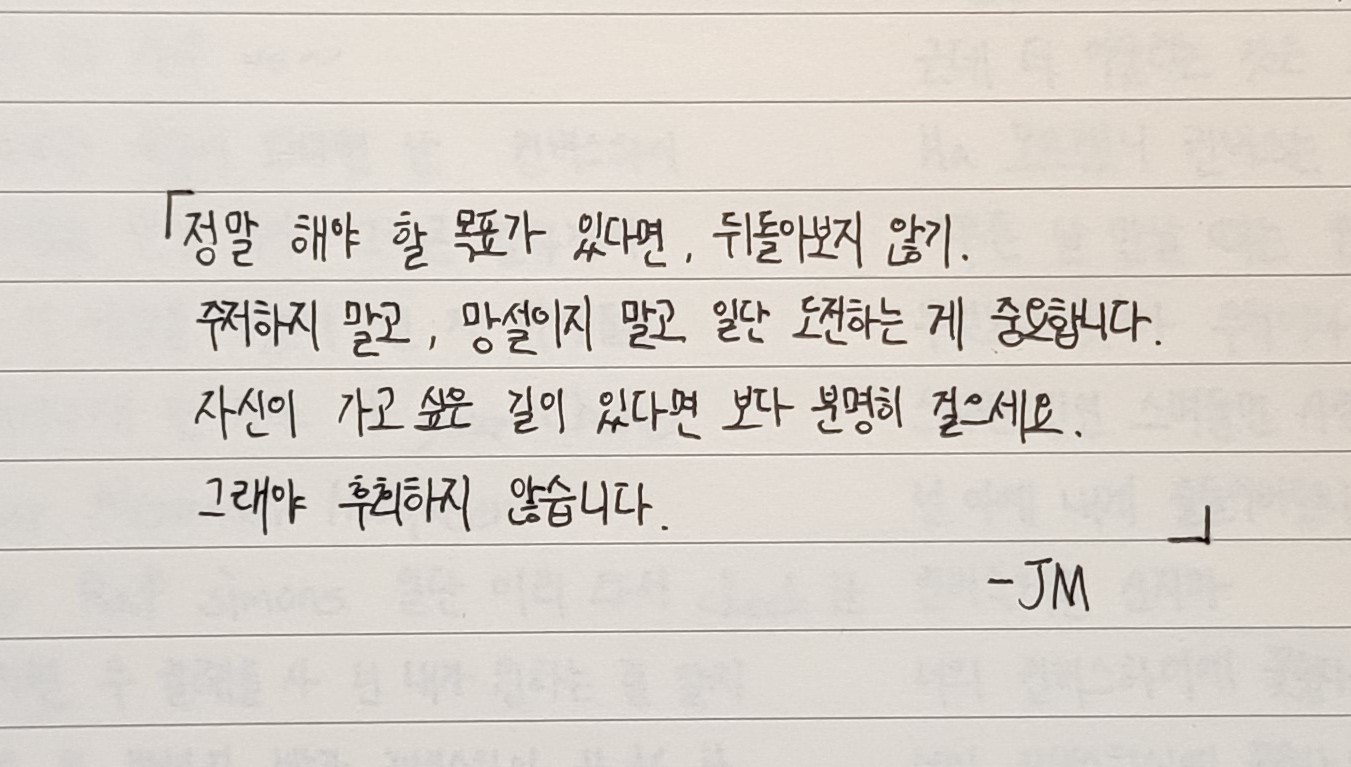 「정말 해야 할 목표가 있다면, 뒤돌아보지 않기.
주저하지 말고, 망설이지 말고 일단 도전하는 게 중요합니다.
자신이 가고 싶은 길이 있다면 보다 분명히 걸으세요.
그래야 후회하지 않습니다.」
-JM